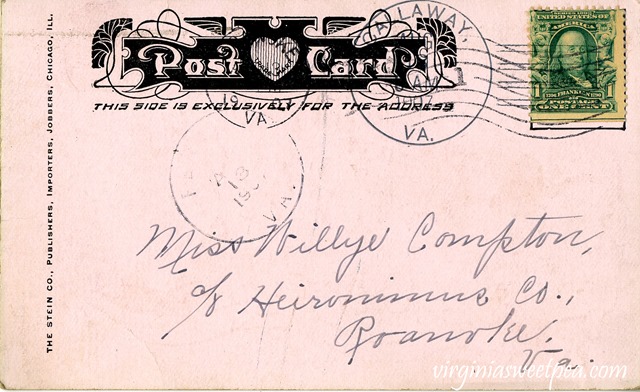 Post Card
THIS SIDE IS EXCLUSIVELY FOR THE ADDRESS
CALLAWAY,
VA.
VA.
13
VA.
UNITED STATES OF
AMERICA
1 1
FRANKLIN
POSTAGE
ONE CENT
Miss Willye Compton,
c/o Heironimus Co.,
Roanoke.
Va.
THE STEIN CO., PUBLISHERS, IMPORTERS, JOBBERS, CHICAGO, ILL.
virginiasweetpea.com